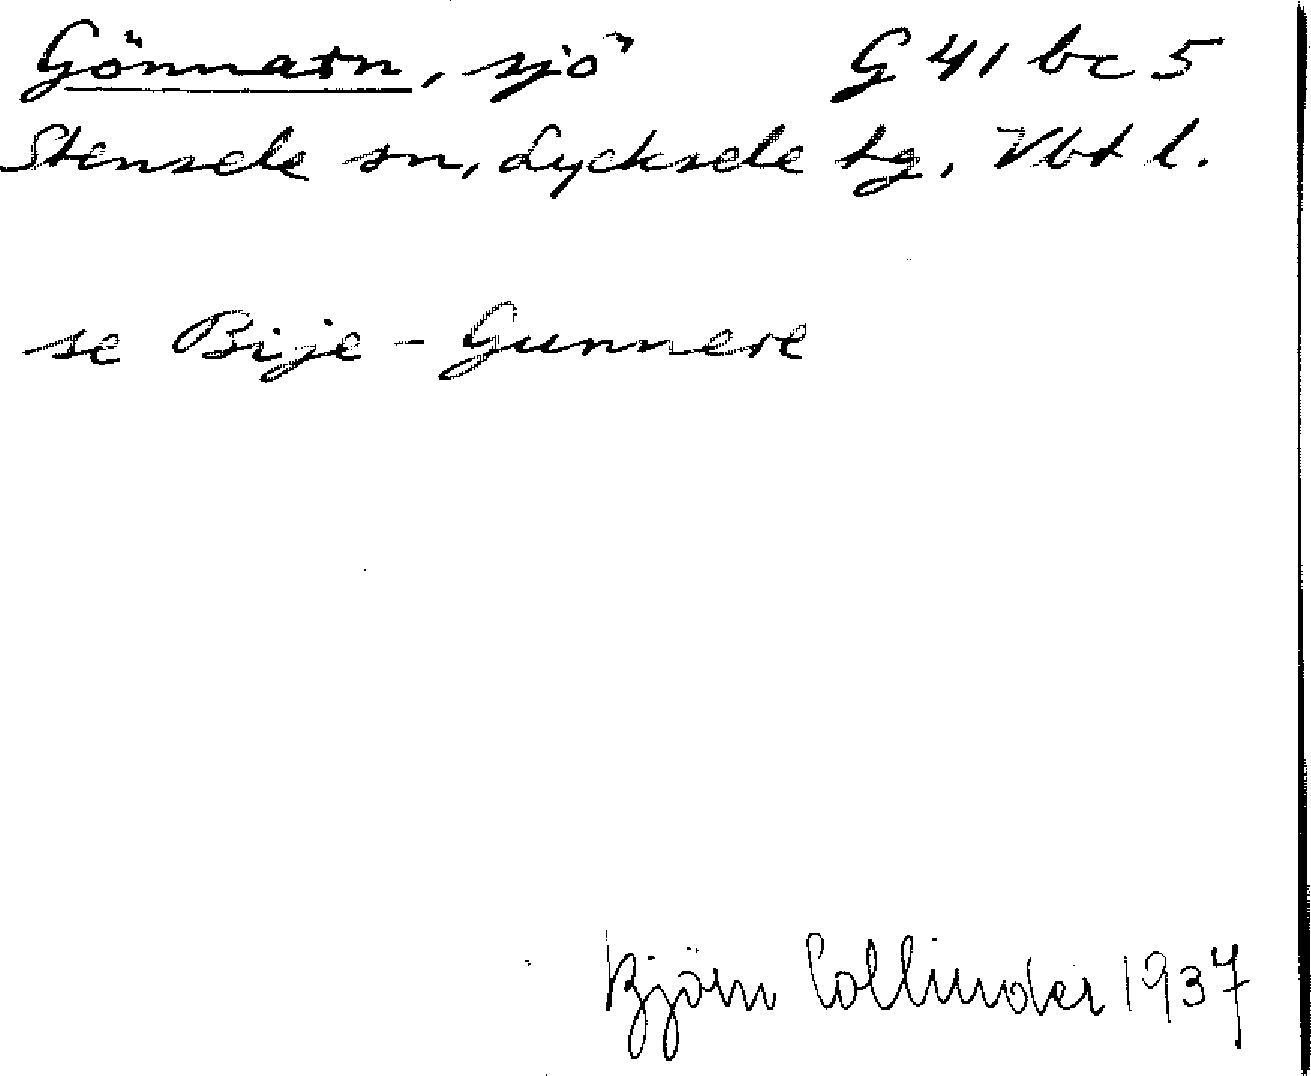 Gönnarn, sjö G 41 bc 5
Stensele sn, Lycksele tg, Vbt l.
se Bije-Gunnere
Björn Collinder 1937